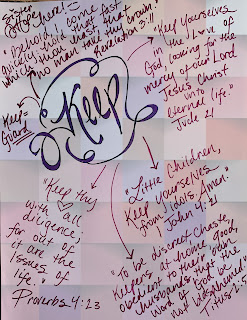 Sister
Hope here! =
"Behold, I come
quickly: hold that fast
which thou hast, that
no man take thy crown."
Revelation 3:11
"Keep yourselves
in the love of
God, looking for the
mercy of our Lord
Jesus Christ
unto
eternal life"
Jude 21
Keep
Keep =
Guard
"Keep this
with all
diligence;
for out of
it are the
Issues of
life."
Proverbs 4:23
"Little Children,
Keep yourselves
from idols. Amen."
John 4:21
"To be discreet, chaste,
Keepers at home, good,
obedient to their own
husbands, that the
word of God be
not blasphemed"
Titus 2:5